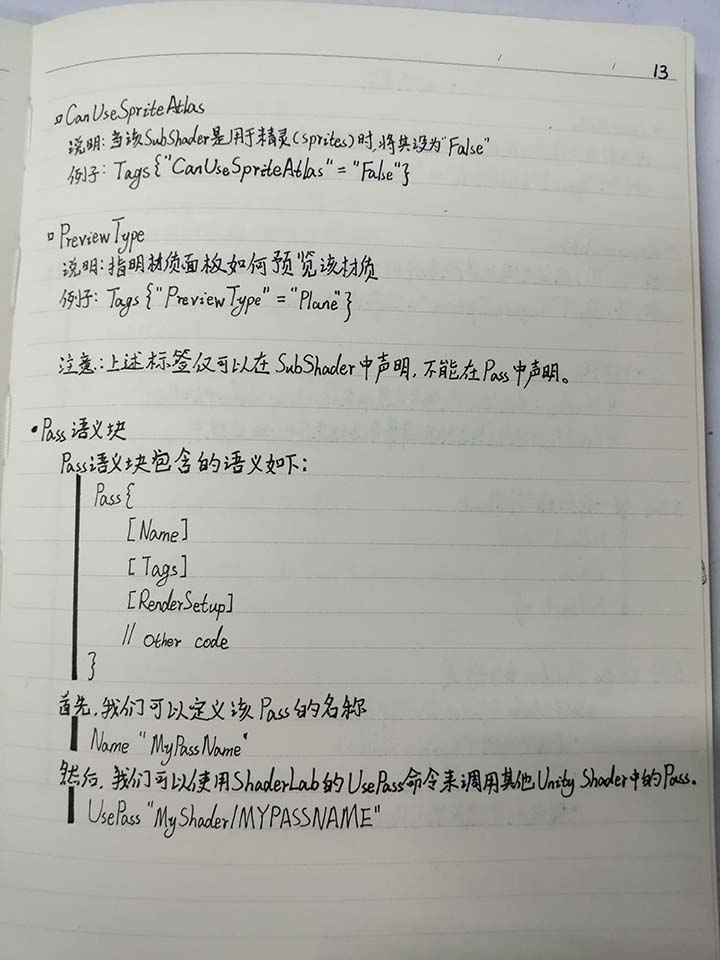 13
CanUseSpriteAtlas
说明:当该SubShader是用于精灵(sprites)时,将其设为"False"
例子: Tags{"CanUseSpriteAtlas"="False"}
PreviewType
说明:指明材质面板如何预览该材质
例子: Tags{"PreviewType"="Plane"}
注意:上述标签仅可以在SubShader中声明,不能在Pass中声明。
•Pass语义块
Pass语义块包含的语义如下:
Pass{
[Name]
[Tags]
[RenderSetup]
// Other code
}
首先,我们可以定义该Pass的名称
Name "MyPassName"
然后,我们可以使用ShaderLab的UsePass命令来调用其他Unity Shader中的Pass.
UsePass "MyShader/MYPASSNAME"